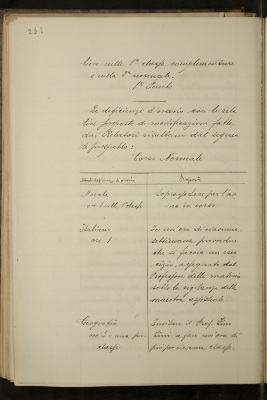 232
tive nella 1ª classe complementare
e nella 1ª normale.
1º Punto
Le deficienze d'orario con le rela
tive proposte di modificazioni fatte
dai Relatori risultano dal seguen
te prospetto:
Corso Normale
Proposte
Morale
ore 1 nella 1ª classe
Soprassedere per l'an
no in corso
Italiano
ore 1
In un'ora di ciascuna
settimana provvedere
che si faccia un eser
cizio, assegnato dal
Professore della materia
sotto la vigilanza della
maestra assistente.
Geografia
ore 3 = una per
classe
Invitare il Prof.
a fare un'ora di
più per ciascuna classe.